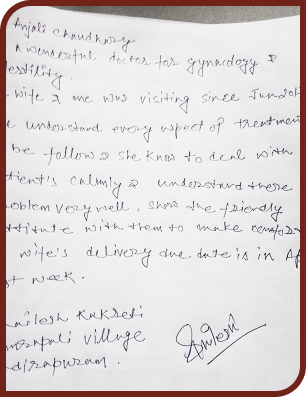 Anjali Chaudhary
A wonderful doctor for gynacology &
fertility.
wife & me was visiting since Jun 2018
understand every aspect of treatment
be follow & she know to deal with
tient's calmly & understand there
oblem very well, show the friendly
ttitute with them to make comfort
wife's delivery due date is in Ap
st week.
ailesh Kukreti
village
dirapuram.